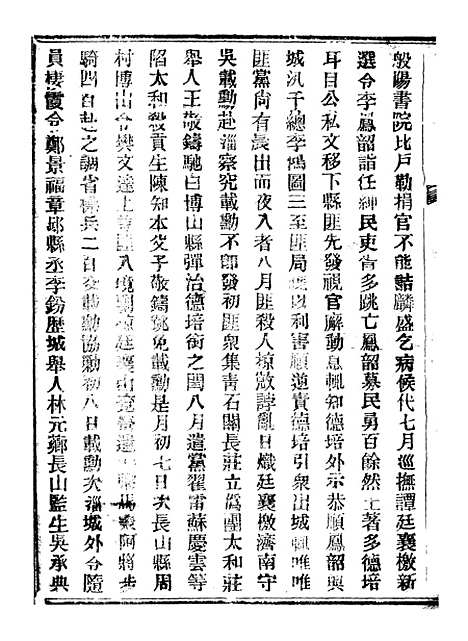 般陽書院比戸勒捐官不能詰麟盛乞病候代七月巡撫譚廷襄檄新
選令李鳳韶詣任紳民吏胥多跳亡鳳韶募民勇百餘然土著多德培
耳目公私文移下縣匪先發視官廨動息輒知德培外示恭順鳳韶與
城汛千總李鴻圖三至匪局以利害順逆責德培引衆出城輒唯唯
匪黨尚有晨出而夜入者八月匪殺人掠歛誖亂日熾廷襄檄濟南守
吳載勳赴淄察究載勳不卽發初匪衆集靑石關長莊立僞團太和莊
舉人王敬鑄馳白博山縣彈治德培銜之閏八月遣黨翟雷蘇慶雲等
陷太和殺貢生陳知本父子敬鑄免載勳是月初七日次長山縣周
村博山令樊文達上匪入境廷襄山遣衆阿將步
騎四百赴之調省標兵二百交載勳協勦初八日載勳次淄城外令隨
員棲霞令鄭景福章邱縣丞李鈖歷城舉人林元薌長山監生吳承典